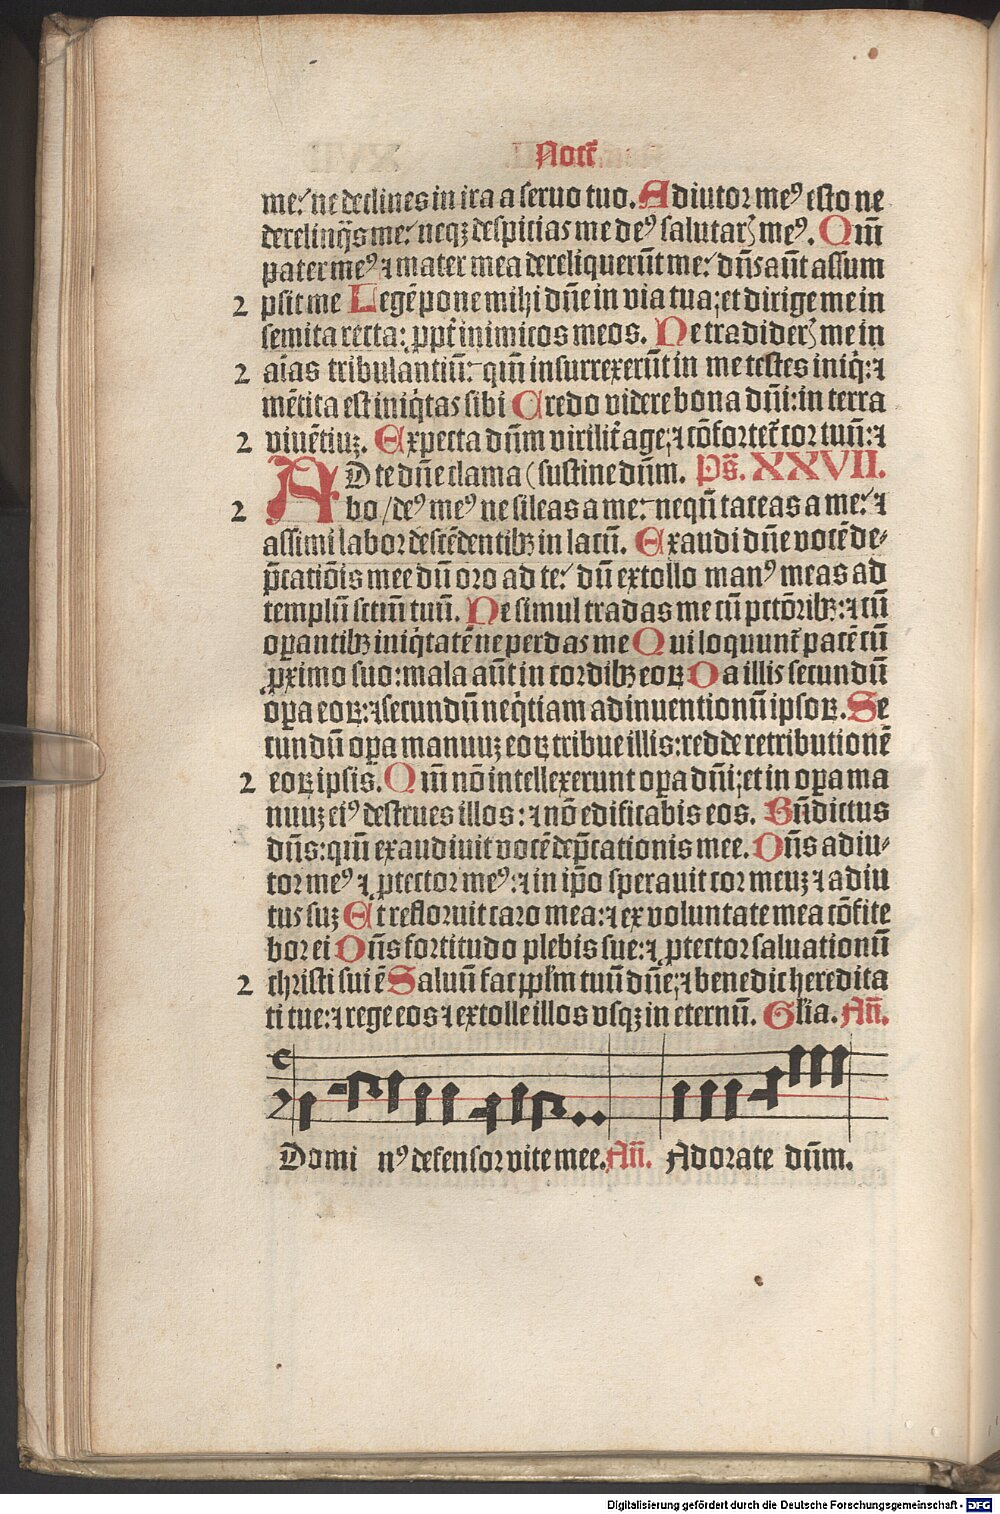 Noctꝭ
me:⸍ ne declines in ira a seruo tuo. Adiutor meꝰ esto ne
derelinq̃s me:⸍ neqꝫ despicias me deꝰ salutarꝭ meꝰ. Qm̄
pater meꝰ ⁊ mater mea dereliquerūt me:⸍ dn̄s aūt assum
2 psit me Legē pone mihi dn̄e in via tua; et dirige me in
semita recta: ꝓpt̄ inimicos meos. Ne tradiderꝭ me in
2 aīas tribulantiū: qm̄ insurrexerūt in me testes iniq̇: ⁊
mētita est iniq̇tas sibi Credo videre bona dn̄i: in terra
2 viuētiuꝫ. Expecta dn̄m virilit̄ age; ⁊ cōfortet̄ cor tuū: ⁊
AD te dn̄e clama (sustine dn̄m. Ps̄. XXVII.
2 bo / deꝰ meꝰ ne sileas a me: neqū taceas a me:⸍ ⁊
assimilabor descēdentibꝫ in lacū. Exaudi dn̄e vocē de⸗
p̄catiōis mee dū oro ad te:⸍ dū extollo manꝰ meas ad
templū sctm̄ tuū. Ne simul tradas me cū pctōribꝫ: ⁊ cū
oꝑantibꝫ iniq̇tatē ne perdas me Qui loquunt̄ pacē cū
ꝓximo suo: mala aūt in cordibꝫ eoꝝ Da illis secundū
oꝑa eoꝝ: ⁊ secundū neq̇tiam adinuentionū ipsoꝝ. Se
cundū oꝑa manuuꝫ eoꝝ tribue illis: redde retributionē
2 eoꝝ ipsis. Qm̄ nō intellexerunt oꝑa dn̄i; et in oꝑa ma
nuuꝫ eiꝰ destrues illos: ⁊ nō edificabis eos. Bn̄dictus
dn̄s: qm̄ exaudiuit vocē dep̄cationis mee. Dn̄s adiu⸗
tor meꝰ ⁊ ꝓtector meꝰ: ⁊ in ip̄o sperauit cor meuꝫ ⁊ adiu
tus suꝫ Et refloruit caro mea: ⁊ ex voluntate mea cōfite
bor ei Dn̄s fortitudo plebis sue: ⁊ ꝓtector saluationū
2 christi sui ē Saluū fac ppl̄m tuū dn̄e; ⁊ benedic heredita
ti tue: ⁊ rege eos ⁊ extolle illos vsqꝫ in eternū. Gl̄ia. An̄.
Domi nꝰ defensor vite mee. An̄. Adorate dn̄m.
Digitalisierung gefördert durch die Deutsche Forschungsgemeinschaft - DFG